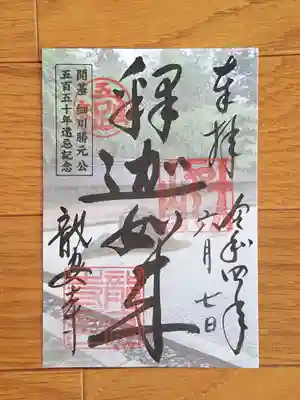 奉拝
令和四年
六月七日
釋迦如来
開基 細川勝元公
五百五十年遠忌記念
龍安寺